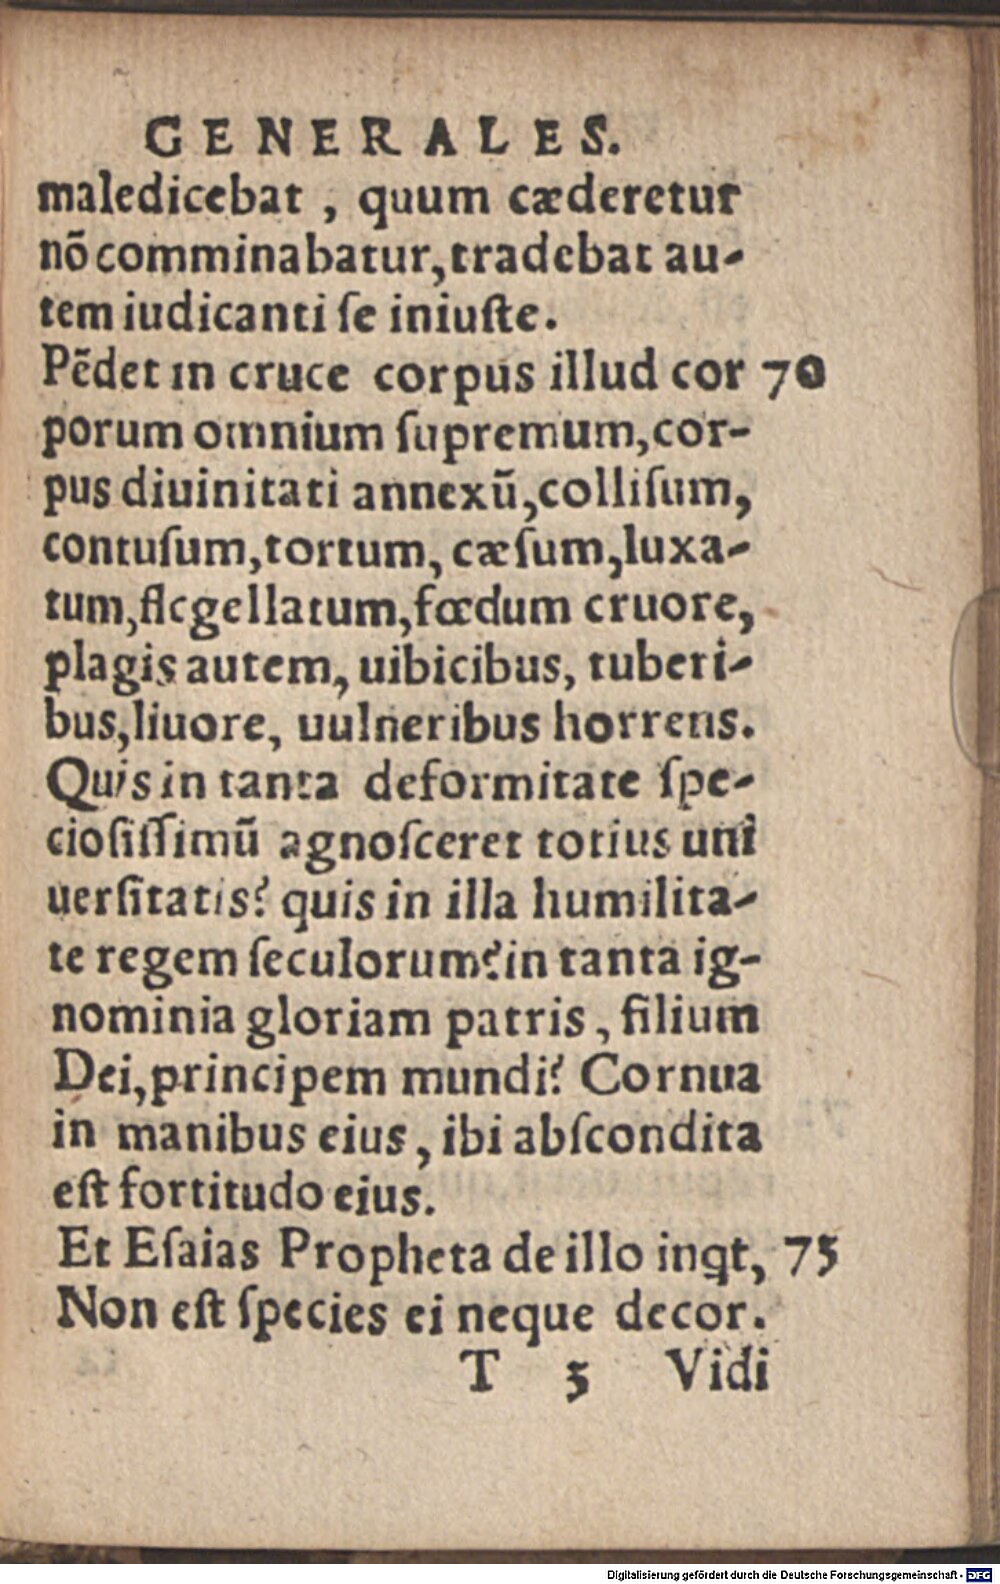 GENERALES.
maledicebat , quum cæderetur
nõ comminabatur, tradebat au-
tem iudicanti ſe iniuſte.
Pẽdet in cruce corpus illud cor 70
porum omnium ſupremum, cor-
pus diuinitati annexũ, colliſum,
contuſum, tortum, cæſum, luxa-
tum, flegellatum, fœdum cruore,
plagis autem, uibicibus, tuberi-
bus, liuore, uulneribus horrens.
Quis in tanta deformitate ſpe-
cioſiſſimũ agnoſceret totius uni
uerſitatis? quis in illa humilita-
te regem ſeculorum? in tanta ig-
nominia gloriam patris , filium
Dei, principem mundi? Cornua
in manibus eius , ibi abſcondita
eſt fortitudo eius.
Et Eſaias Propheta de illo inqt, 75
Non eſt ſpecies ei neque decor.
T 5 Vidi
Digitalisierung gefördert durch die Deutsche Forschungsgemeinschaft - DFG